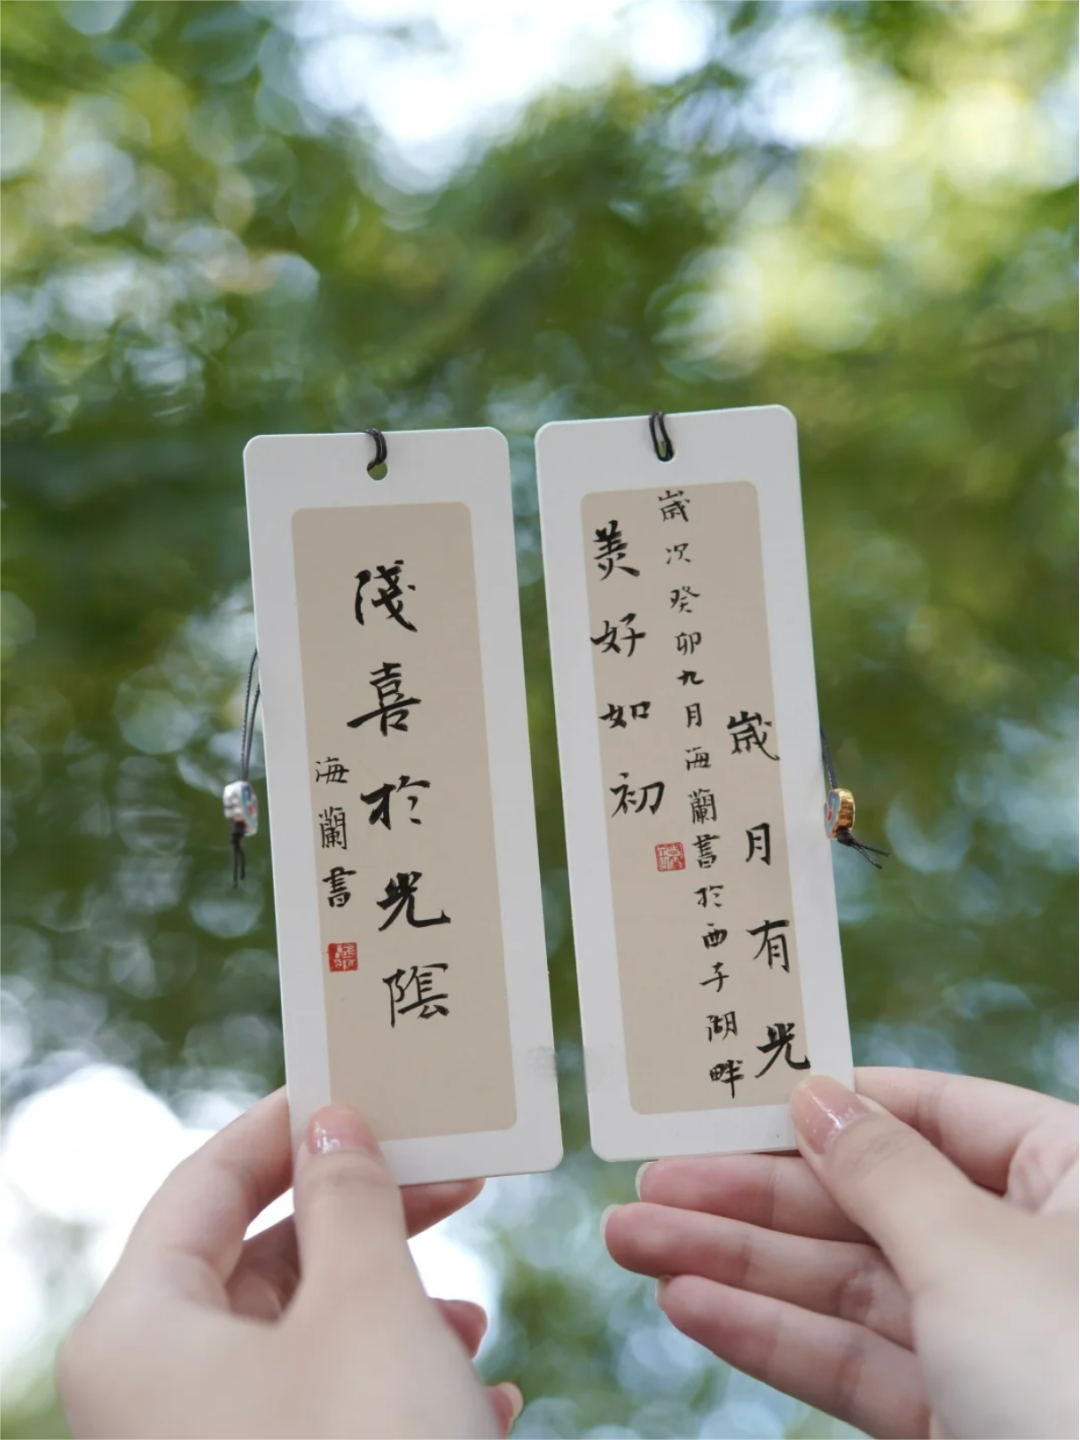 淺喜於光陰
海蘭書
歲月有光
歲次癸卯九月海蘭書於西子湖畔
美好如初